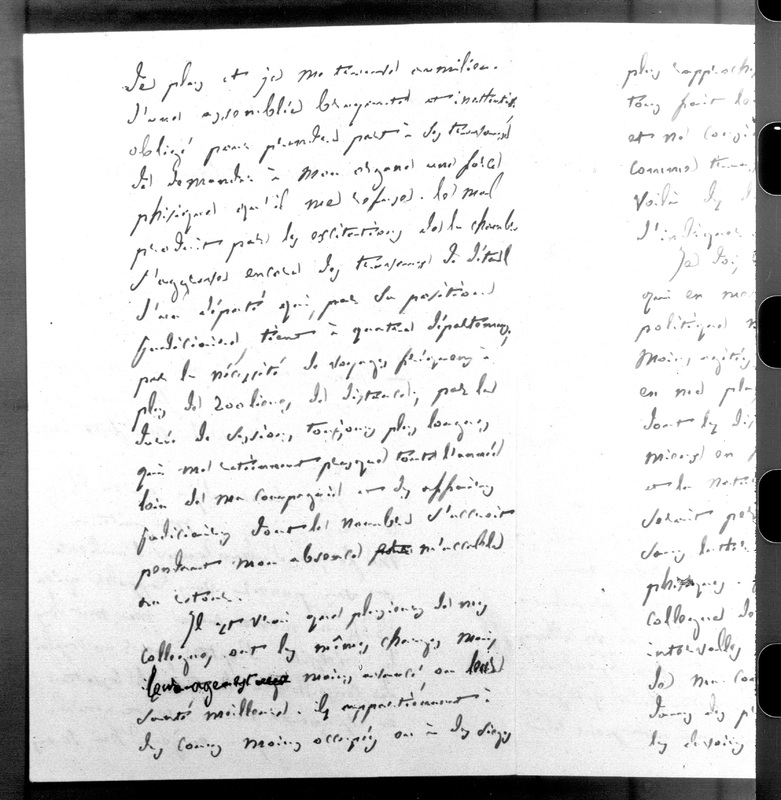 De plus et je me trouve au milieu
d'une assemblée bruyante et inattentive
obligé pour prendre part à ses travaux
de demander à mon organe une force
phisique qu'il me refuse. le mal
produit par les excitations de la chambre
s'aggrave encore des travaux de détail
d'un député qui, par sa position
judiciaire, tient à quatre départemens,
par la nécessité de voyages fréquens à
plus de 200 lieues de distance, par la
durée de sessions toujours plus longues
qui me retiennent presque toute l'année
loin de ma compagnie et des affaires
judiciaires dont le nombre s'accroit
pendant mon absence m'accable
au retour.
Il est vrai que plusieurs de mes
collegues ont les mêmes charges mais,
moins avancé ou leur
santé meilleure. ils appartiennent à
des cours moins occupées ou à des sieges
plus rapproch
tous fait
et ne
comme
Voilà des
d'indiquer
Je dois
qui en
politique
moins
en me
dont les
mieux en
et la
serait
sans
phisiques
collegue de
intervalles
de ma
dans des
les devoirs